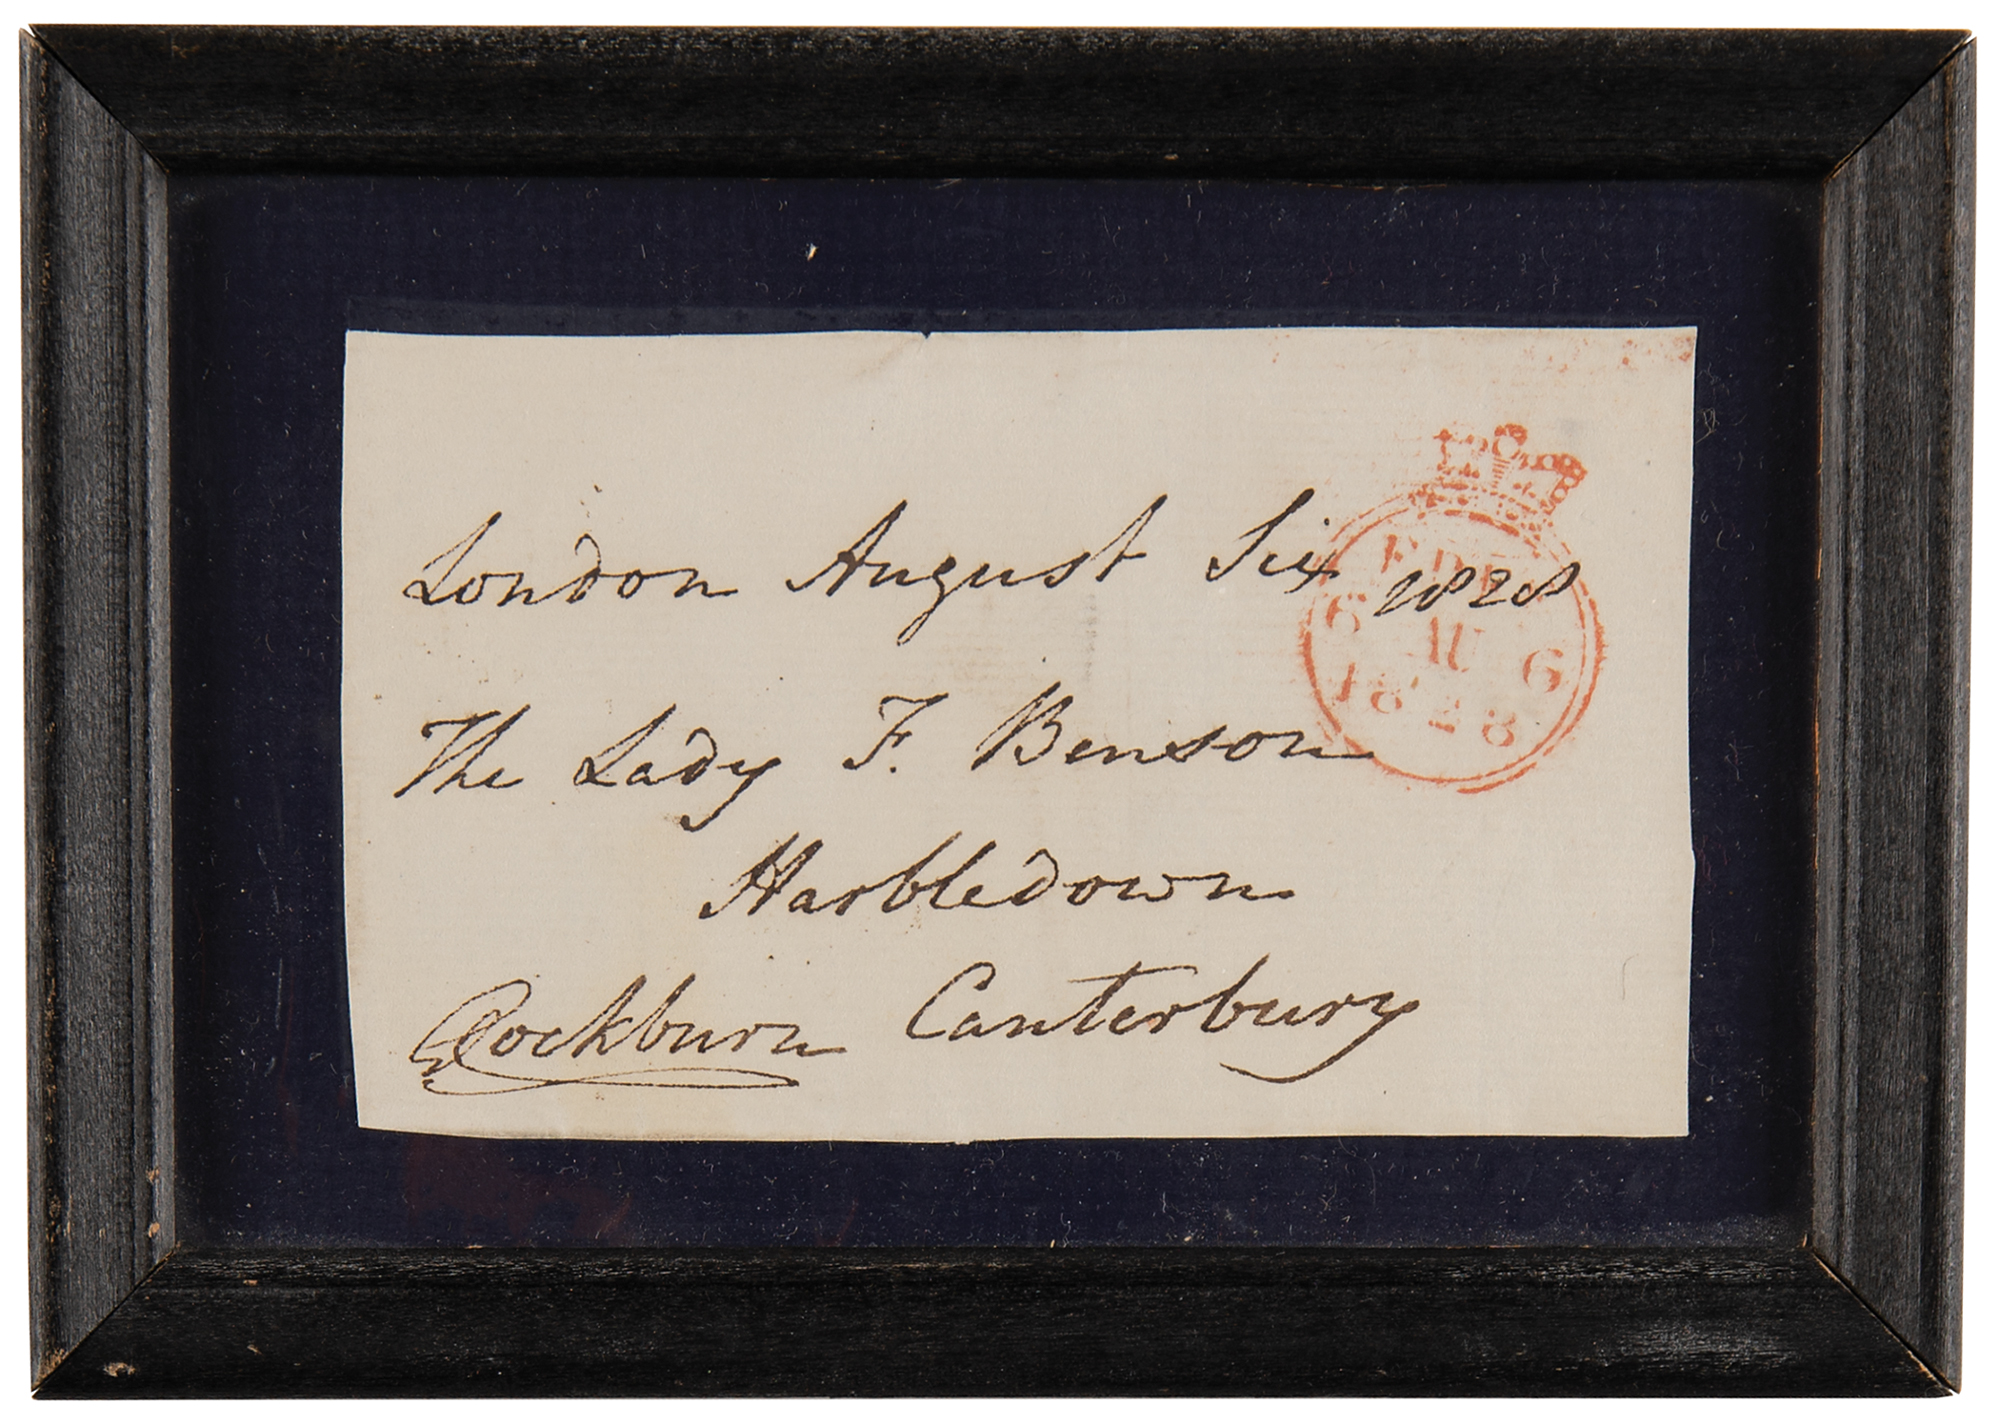 London August Six 1828
The Lady F. Benson
Harbledown
GCockburn Canterbury
6 AU 6
1828